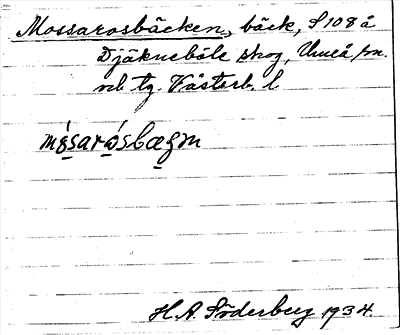 Mossarosbäcken, bäck, S 108 å
Djäkneböle skog, Umeå sn.
och tg. Västerb. l
mósarósbæȝn
H. A. Söderberg 1934.